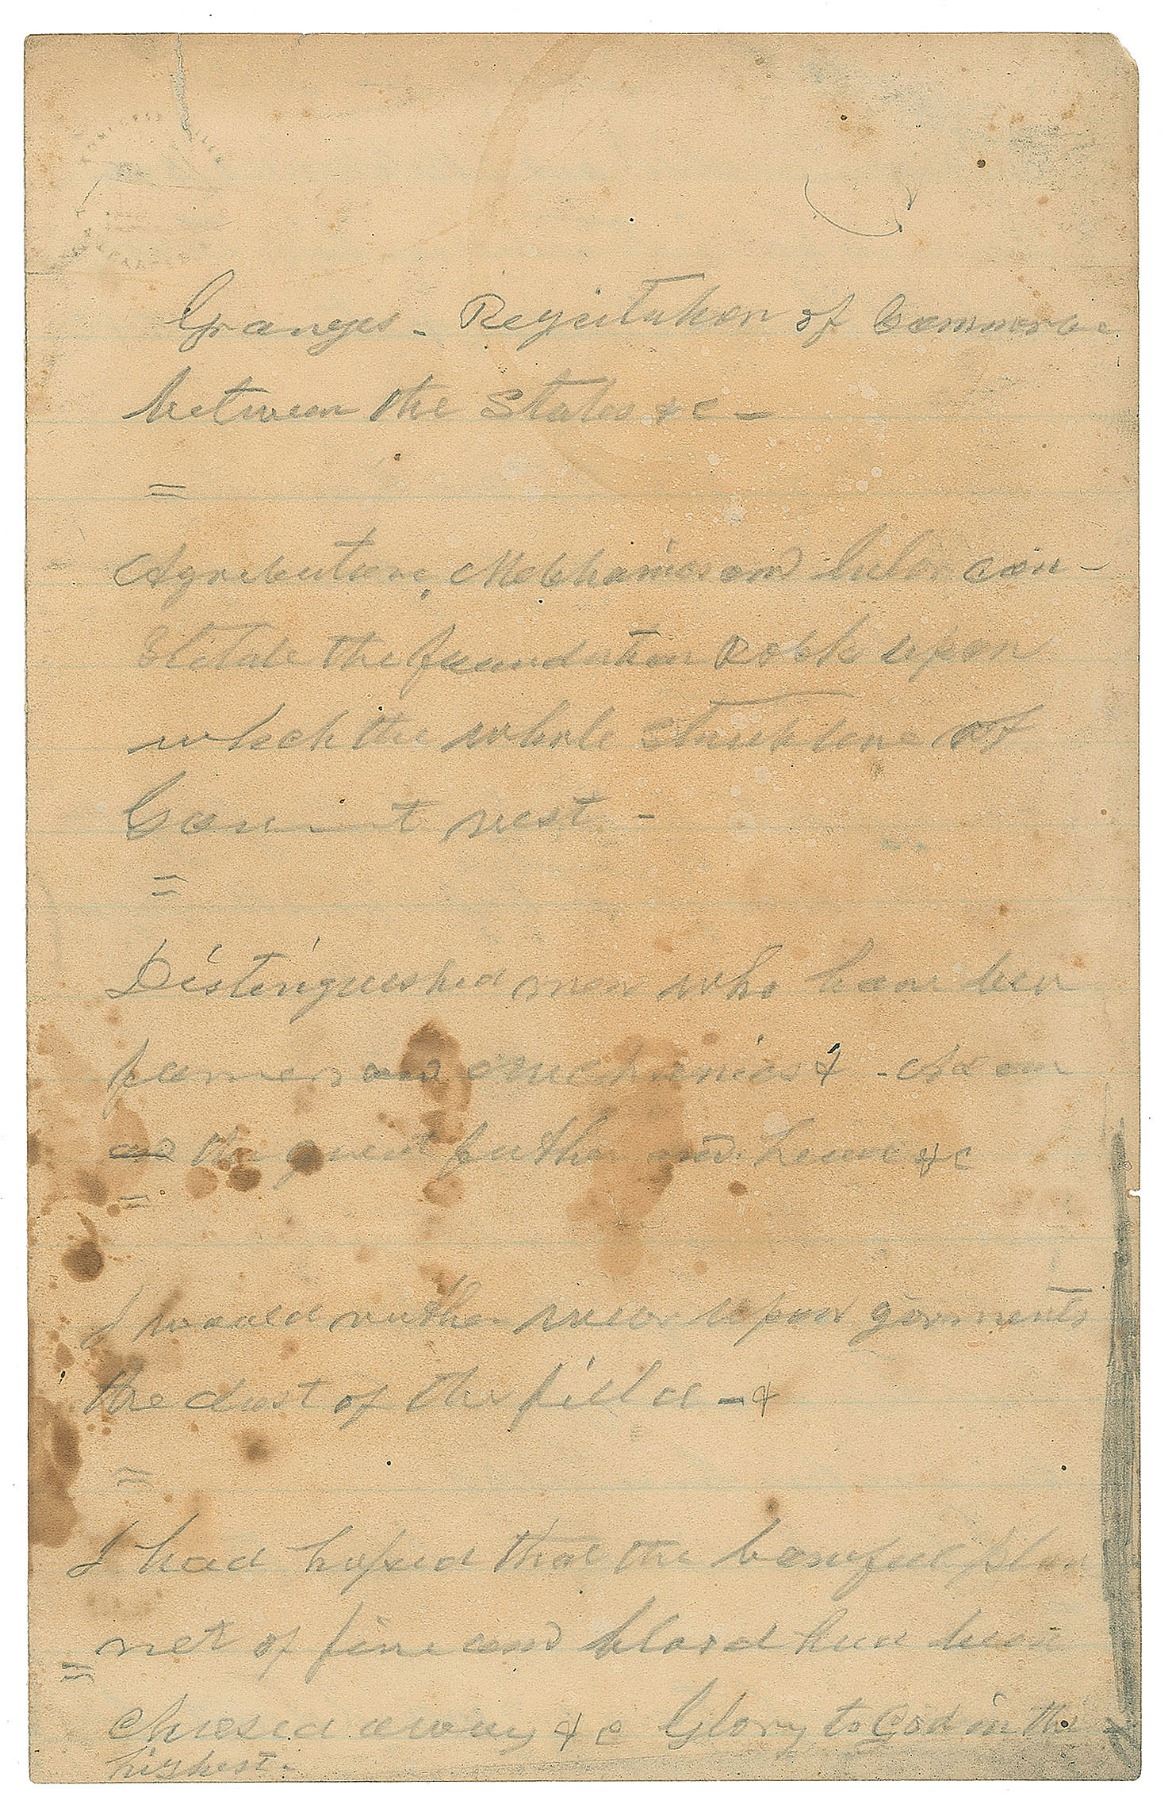 Granges - Regulation of Commerce
between the States &c -
=
Agriculture, Mechanics and labor con-
stitute the foundation Rock upon
which the whole structure of
Gov____t rest -
=
Distinguished men who have been
farmers and mechanics & - Adam
as the great father and &c
=
I would rather wear upon garments
the dust of the field -&
=
I had hoped that the baneful plan
net of fire and blood had been
=
chased away &c Glory to God in the
highest.